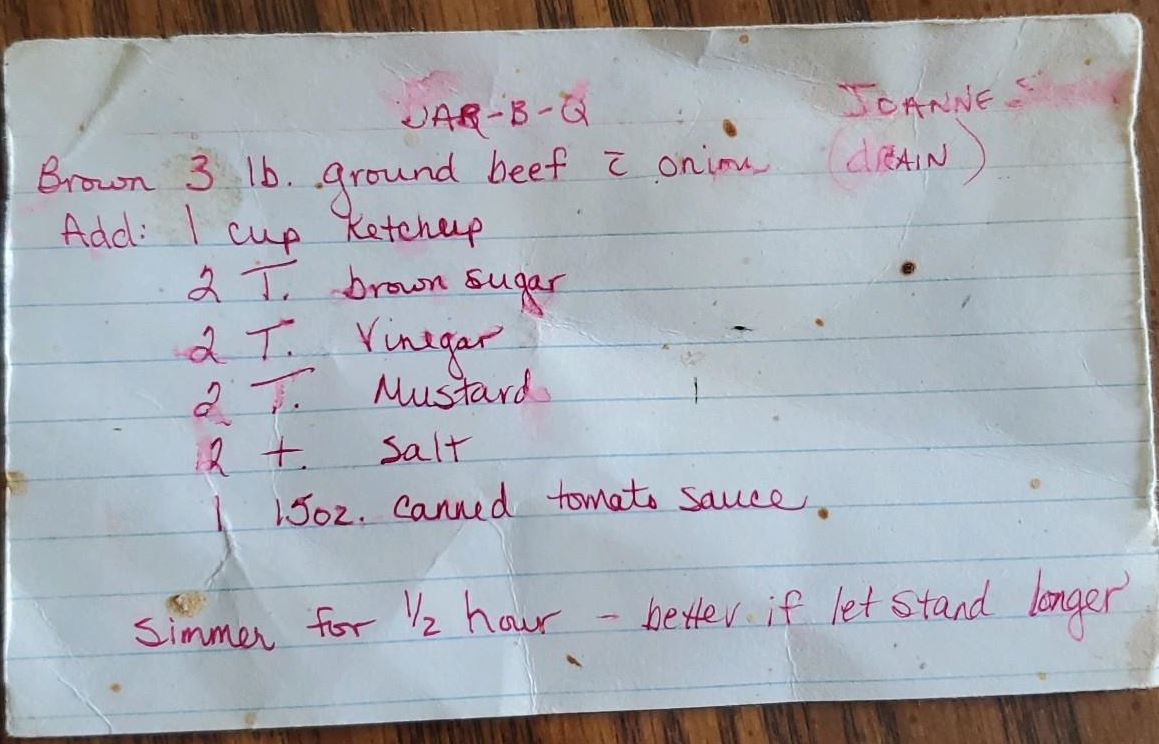 JAR-B-Q JOANNE
Brown 3 lb. ground beef c̄ onion (dRAIN)
Add: 1 cup Ketchup
2 T. brown sugar
2 T. Vinegar
2 T. Mustard
2 t. Salt
1 15oz. canned tomato sauce.
Simmer for 1/2 hour - better if let stand longer